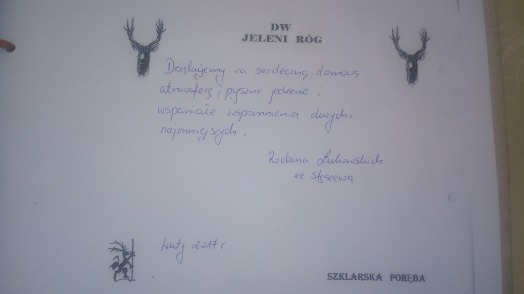 DW
JELENI RÓG
Dziękujemy za serdeczną, domową
atmosferę i pyszne jedzenie i
wspaniałe wspomnienia dużych i
najmniejszych.
Rodzina Żukowskich
ze Stęszewa
Luty 2017 r
SZKLARSKA PORĘBA